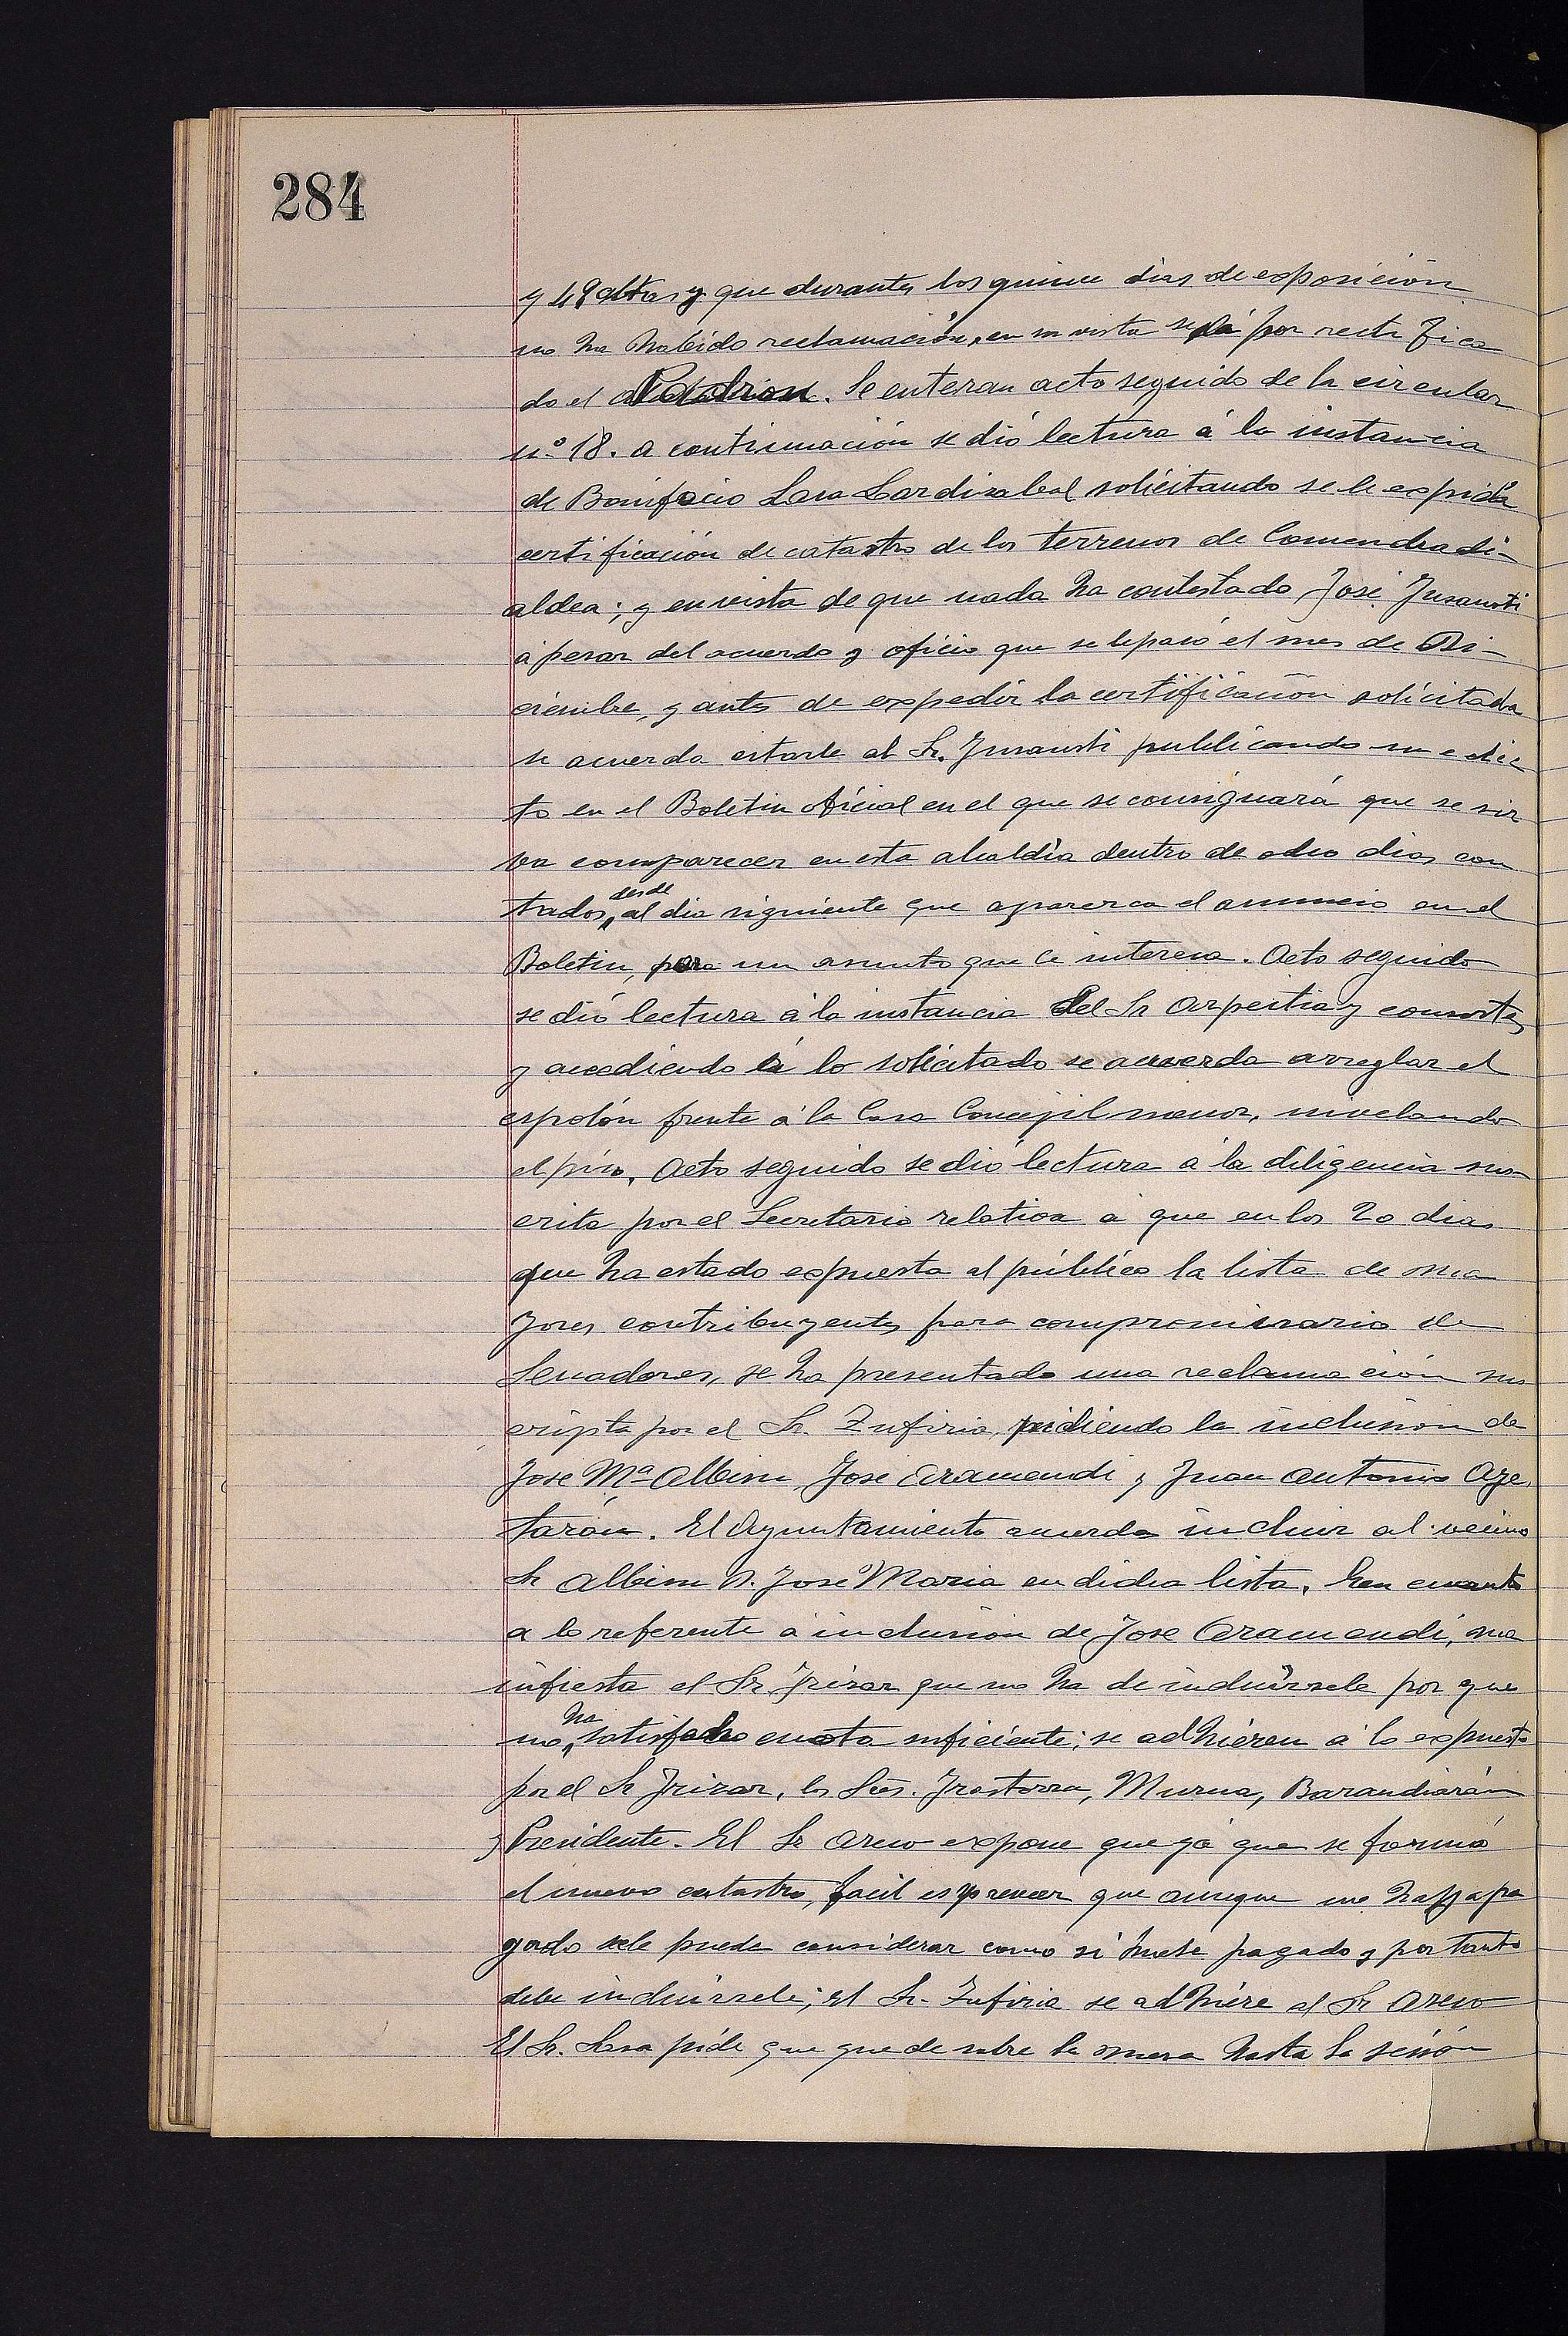 284
y 49 altas y que durante los quince dias de exposición
no ha habido reclamación, en su vista se dá por rectifica
do el Padrón. Se enteran acto seguido de la circular
nº 18. a continuación se dió lectura á la instancia
de Bonifacio Lasa Lardizabal solicitando se le expida
certificación de catastro de los terrenos de Comendradi-
aldea; y en vista de que nada ha contestado José Jusausti
á pesar del acuerdo y oficio que se le pasó el mes de Di-
ciembre, y antes de expedir la certificación solicitada
se acuerda citarle al Sr. Jusausti publicando un edic
to en el Boletin oficial en el que se consignará que se sir
va comparecer en esta alcaldía dentro de ocho dias con
tados desde al dia siguiente que aparezca el anuncio en el
Boletin, para un asunto que le interesa. Acto seguido
se dió lectura á la instancia del Sr Azpeitia y consortes
y accediendo á lo solicitado se acuerda arreglar el
espolón frente á la Casa Concejil menor, nivelando
el piso. Acto seguido se dió lectura á la diligencia sus
crita por el Secretario relativa á que en los 20 dias
que ha estado expuesta al público la lista de ma
yores contribuyentes para compromisario de
Senadores, se ha presentado una reclamación sus
cripta por el Sr. Zufiria, pidiendo la inclusión de
José Mª Albisu, José Aramendi y Juan Antonio Aze
tarán. El Ayuntamiento acuerda incluir al vecino
Sr Albisu D. José Maria en dicha lista. En cuanto
a lo referente á inclusión de José Aramendi, ma
nifiesta el Sr Irizar que no ha de incluirsele por que
no ha satisfecho cuota suficiente; se adhieren á lo expuesto
por el Sr Irizar, los Sres. Irastorza, Murua, Barandiarán
y Presidente. El Sr Areso expone que yá que se formó
el nuevo catastro, facil es preveer que aunque no haya pa
gado se le puede considerar como si hubiese pagado y por tanto
debe incluirsele; el Sr. Zufiria se adhiere al Sr Areso
El Sr. Lasa pide que quede sobre la mesa hasta la sesión